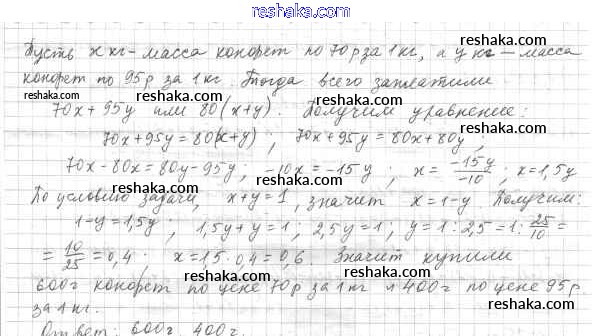 reshaka.com
Пусть x кг – масса конфет по 70 р за 1 кг, а y кг – масса
reshaka.com
конфет по 95 р за 1 кг. Тогда всего заплатили
reshaka.com reshaka.com
70x+95y или 80(x+y). Получим уравнение:
reshaka.com reshaka.com
70x+95y=80(x+y); 70x+95y=80x+80y;
reshaka.com
70x-80x=80y-95y; -10x=-15y; x= -15y/-10; x=1,5y
reshaka.com reshaka.com
По условию задачи, x+y=1, значит x=1-y. Получим:
reshaka.com reshaka.com
1-y=1,5y; 1,5y+y=1; 2,5y=1; y=1:2,5=1:25/10=
reshaka.com
=10/25=0,4. x=1,5·0,4=0,6. Значит купили
reshaka.com
600г конфет по цене 70р за 1 кг и 400г по цене 95р
reshaka.com
за 1 кг.
reshaka.com
Ответ: 600г, 400г.